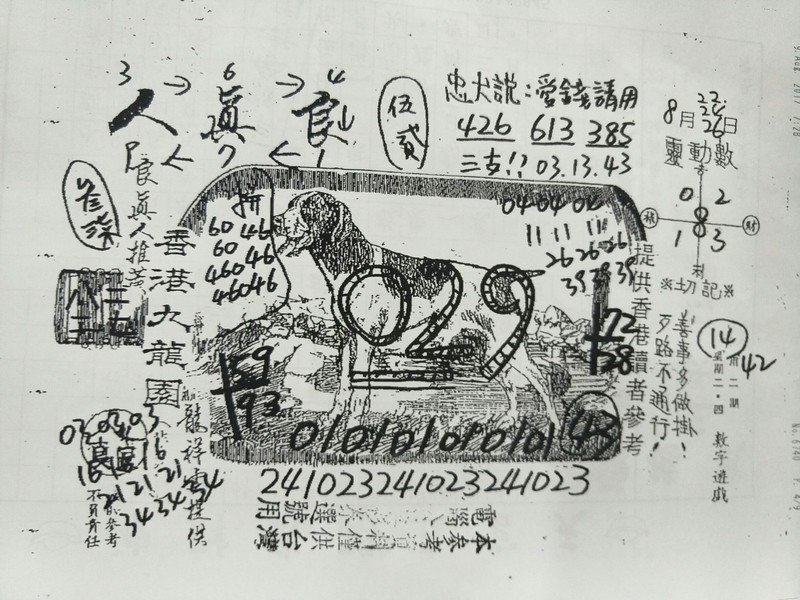 3 → 6 → 4
人 真 良
P ← 7 ← 1
伍貳
忠犬說：愛錢請用
426 613 385
三支!! 03.13.43
22.
24
8月26日
靈動數
0 2
8
1 3
財
※切記※
善事多做掛！
歹路不通行！
14
42
星期二·四
數字遊戲
良真人推薦
香港九龍園
拼
60 46
60 46
46046
46046
04 04 04
11 11 11
26 26 26
39 39 39
提供香港讀者參考
029
72
28
59
93
01010101010101
43
03 03 03
16 16
21 21 21
34 34 34
不負責任
提供
241023241023241023
本參考資料僅供台灣
選號用
9 AUG 2017